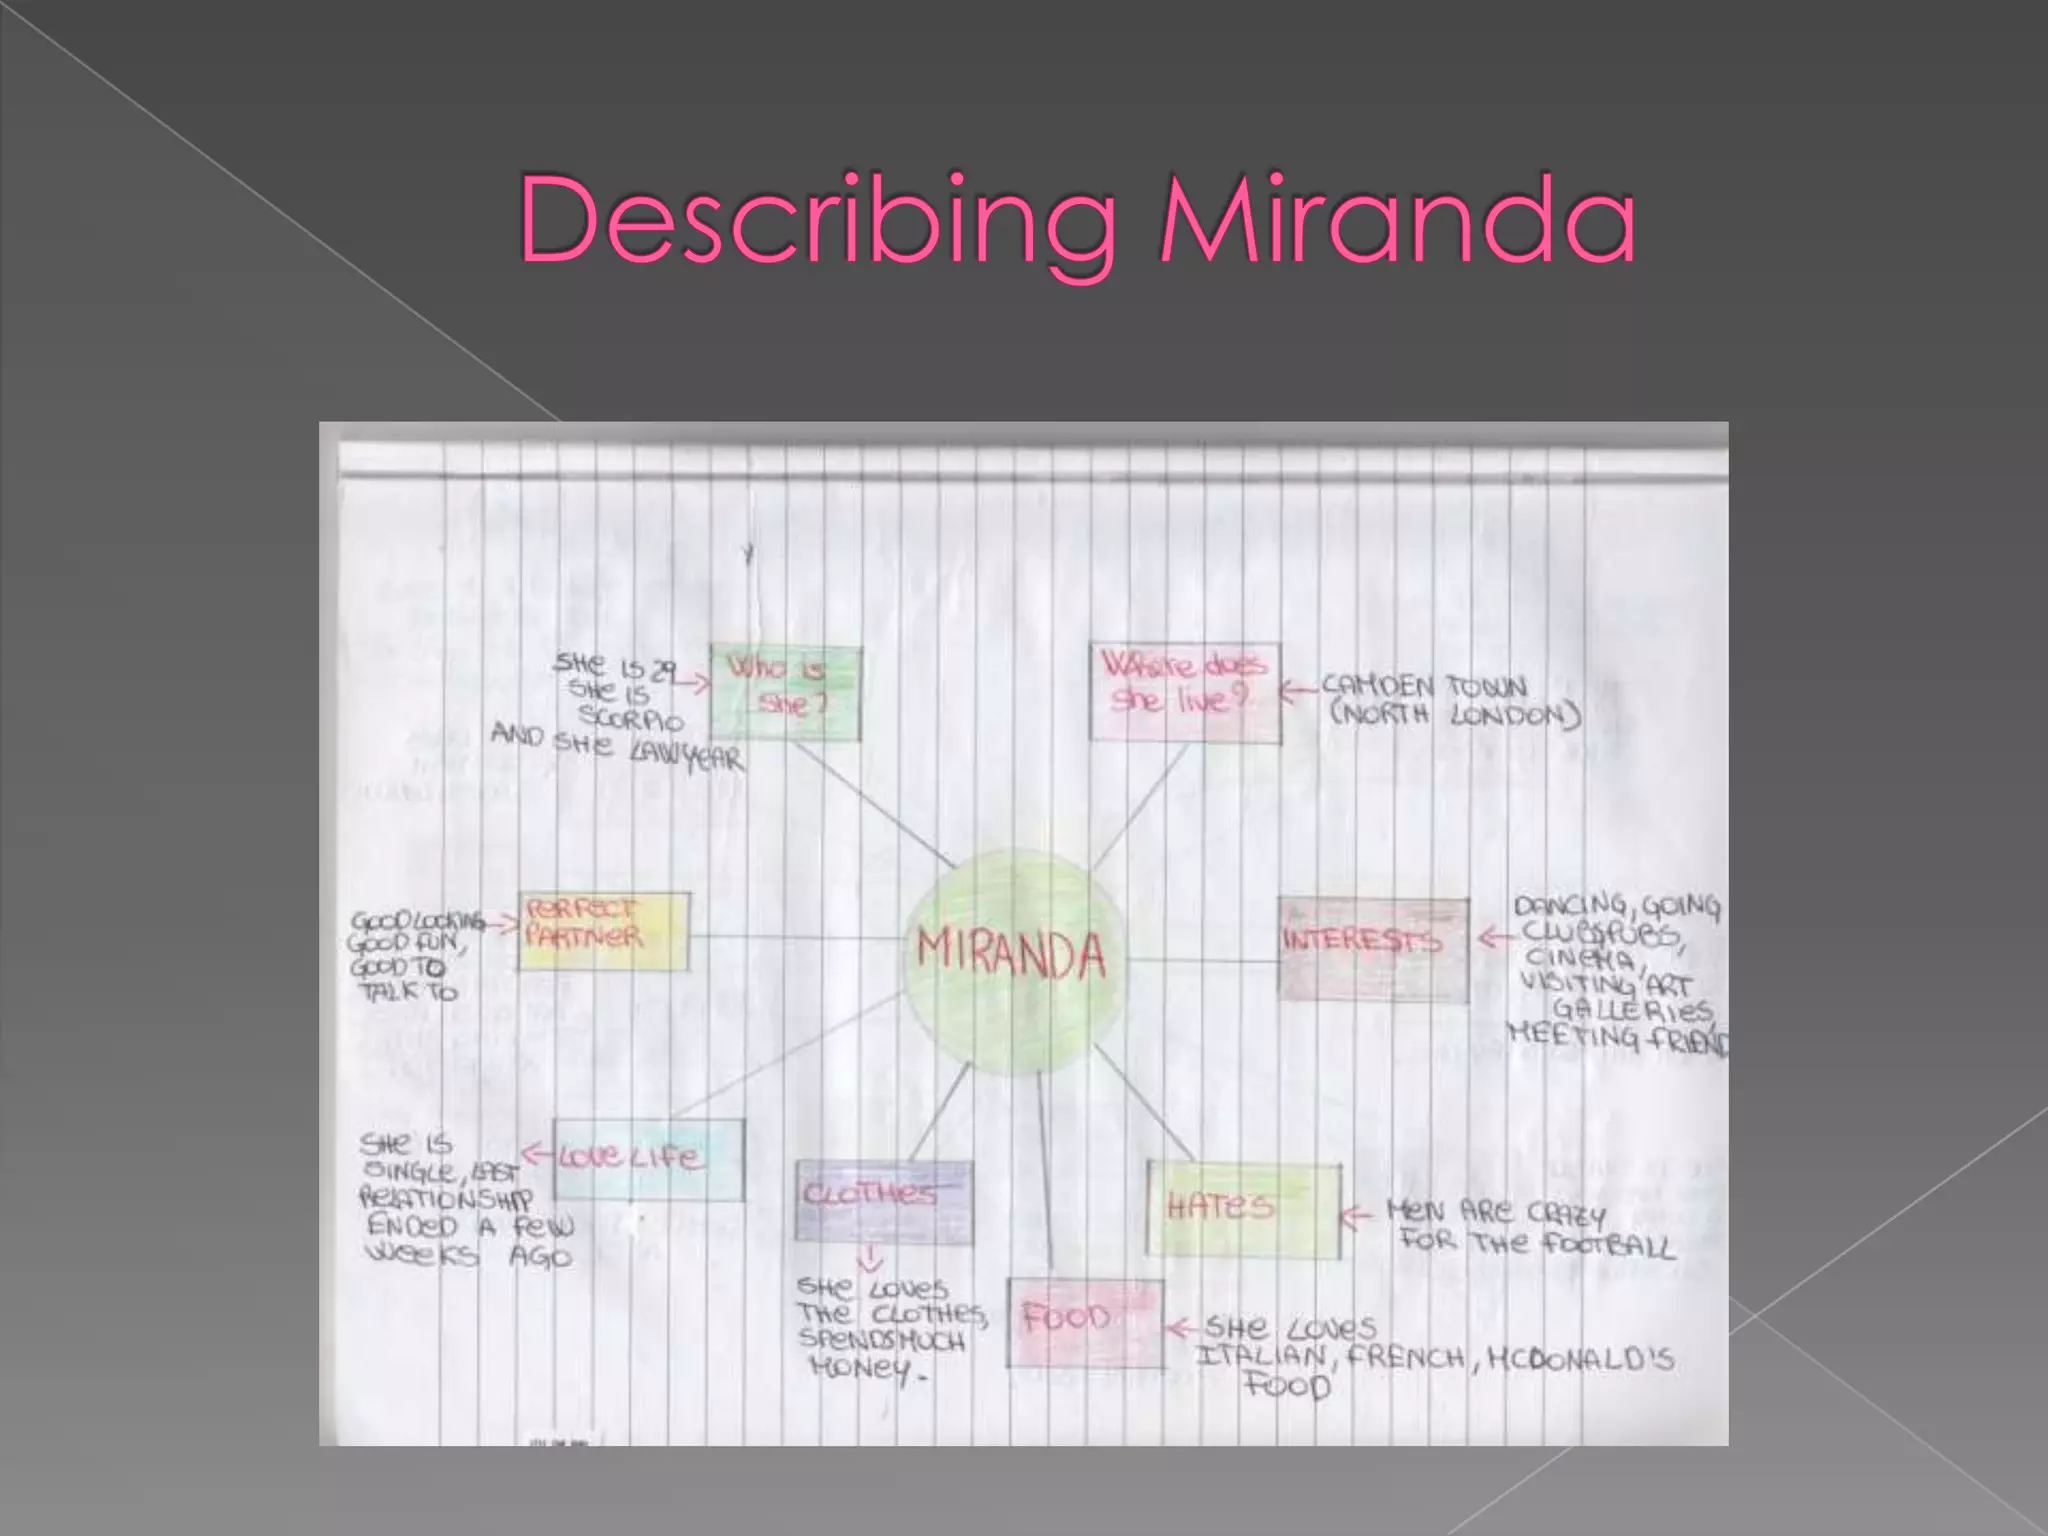 Describing Miranda
SHe IS 29
SHe IS
SCORPIO
AND SHe LAWYEAR
Who is
she?
Where does
she live?
CAMDEN TOWN
(NORTH LONDON)
GOOD LOOKING
GOOD FUN,
GOOD TO
TALK TO
PERFECT
PARTNER
MIRANDA
INTERESTS
DANCING, GOING
CLUBS,PUBS,
CINEMA,
VISITING ART
GALLERIES,
MEETING FRIEND
SHe IS
SINGLE, LAST
RELATIONSHIP
ENDED A FEW
WEEKS AGO
LOVE LIFE
CLOTHES
SHe LOVES
THE CLOTHES,
SPENDS MUCH
MONEY.
HATES
MEN ARE CRAZY
FOR THE FOOTBALL
FOOD
SHe LOVES
ITALIAN, FRENCH, MCDONALD'S
FOOD